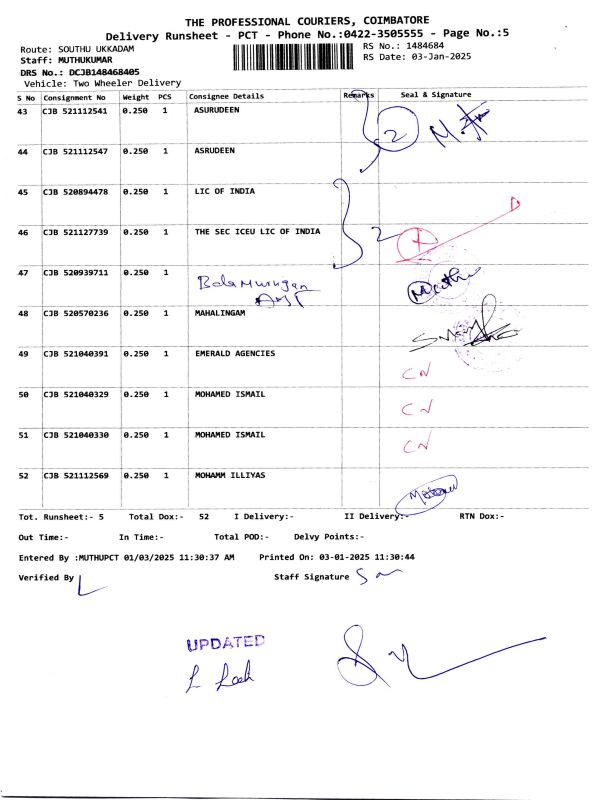 THE PROFESSIONAL COURIERS, COIMBATORE
Delivery Runsheet - PCT - Phone No.:0422-3505555 - Page No.:5
Route: SOUTHU UKKADAM
RS No.: 1484684
Staff: MUTHUKUMAR
RS Date: 03-Jan-2025
DRS No.: DCJB148468405
Vehicle: Two Wheeler Delivery
S No Consignment No Weight PCS Consignee Details Remarks Seal & Signature
43 CJB 521112541 0.250 1 ASURUDEEN
2
44 CJB 521112547 0.250 1 ASRUDEEN
45 CJB 520894478 0.250 1 LIC OF INDIA
46 CJB 521127739 0.250 1 THE SEC ICEU LIC OF INDIA 2
47 CJB 520939711 0.250 1 Balamurugan
48 CJB 520570236 0.250 1 MAHALINGAM
49 CJB 521040391 0.250 1 EMERALD AGENCIES
CN
50 CJB 521040329 0.250 1 MOHAMED ISMAIL
CN
51 CJB 521040330 0.250 1 MOHAMED ISMAIL
CN
52 CJB 521112569 0.250 1 MOHAMM ILLIYAS
Tot. Runsheet:- 5 Total Dox:- 52 I Delivery:- II Delivery:- RTN Dox:-
Out Time:- In Time:- Total POD:- Delvy Points:-
Entered By :MUTHUPCT 01/03/2025 11:30:37 AM Printed On: 03-01-2025 11:30:44
Verified By Staff Signature
UPDATED